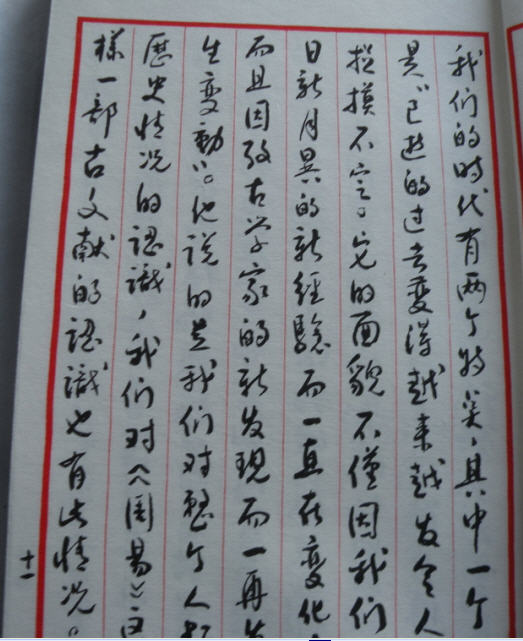 我们的时代有两个特奌、其中一个
是“已逝的过去变得越来越发令人
捉摸不定。它的面貌不僅因我们
日新月異的新經驗而一直在变化，
而且因考古学家的新发現而一再发
生变動”。他说的是我们对整个人类
歷史情况的認識，我们对《周易》这
樣一部古文献的認識也有此情况。
十一